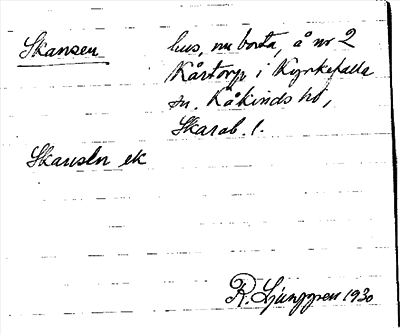 Skansen hus, nu borta, å nr 2
Kårtorp i Kyrkefalla
sn. Kåkinds hd,
Skarab. l.
Skanseln ek
R. Ljunggren 1930